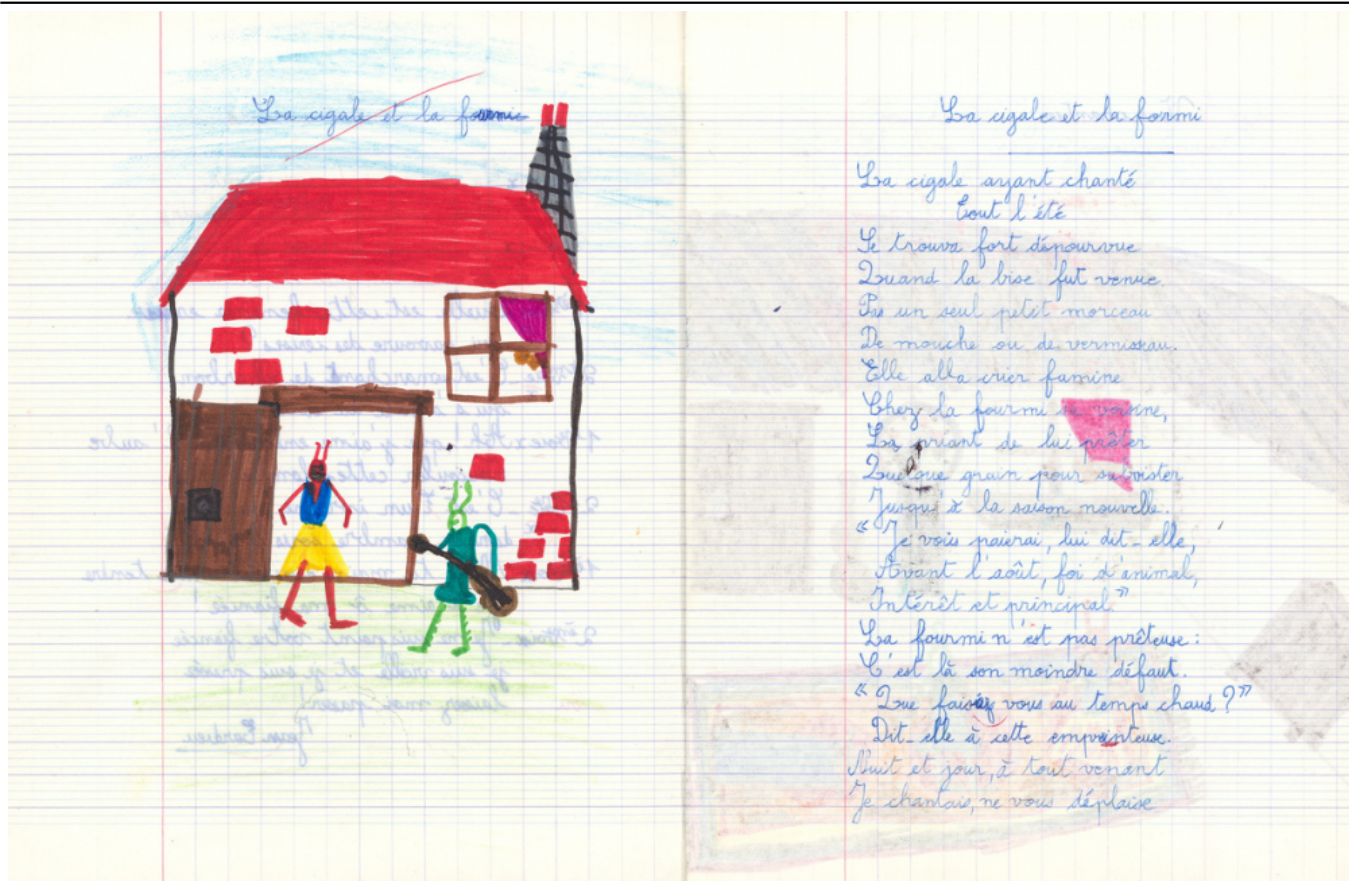 La cigale et la fourmie
La cigale et la formi
La cigale ayant chanté
Tout l'été
Se trouva fort dépourvue
Quand la bise fut venue.
Pas un seul petit morceau
De mouche ou de vermisseau.
Elle alla crier famine
Chez la fourmi sa voisine,
La priant de lui prêter
Quelque grain pour subsister
Jusqu'à la saison nouvelle.
"Je vous paierai, lui dit-elle,
Avant l'août, foi d'animal,
Intérêt et principal."
La fourmi n'est pas prêteuse :
C'est là son moindre défaut.
"Que faisiez vous au temps chaud ?"
Dit-elle à cette emprunteuse.
Nuit et jour, à tout venant
Je chantais, ne vous déplaise